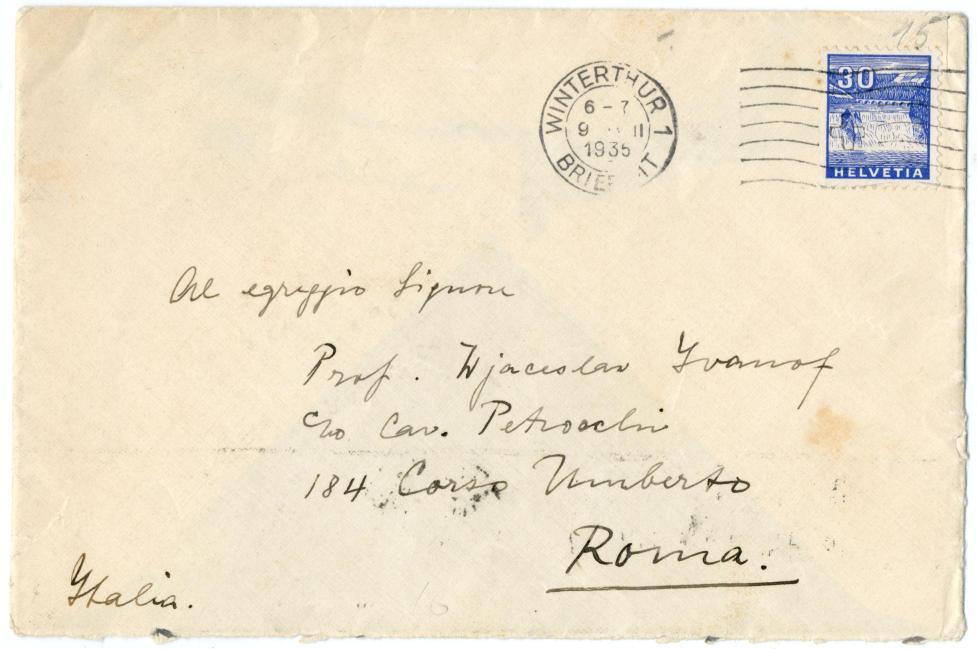 15
WINTERTHUR 1
6-7
9 II
1935
30
HELVETIA
Al egreggio Signore
Prof. Wjaceslav Yvanof
c/o Cav. Petrocchi
184 Corso Umberto
Roma.
Italia.